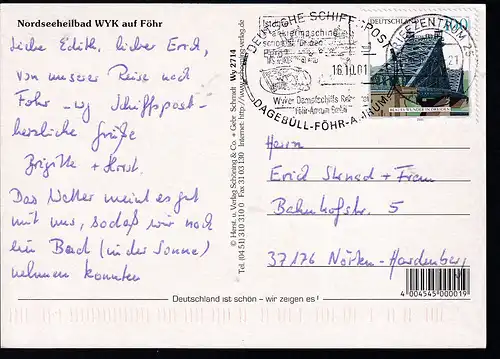 Nordseeheilbad WYK auf Föhr
Liebe Edith, lieber Erich,
von unserer Reise nach
Föhr - wg Schiffspost -
herzliche Grüße
Brigitte + Horst.
Das Wetter meint es gut
mit uns, sodaß wir noch
ein Bad (in der Sonne)
nehmen konnten
© Herst. u. Verlag Schöning & Co. + Gebr. Schmidt Wy 2714
Tel. (04 51) 310 310 0 Fax 31 03 130 Internet: http://www.
DEUTSCHE SCHIFFSPOST
16.10.01
Wyker Dampfschiffs Reederei
Föhr-Amrum GmbH
DAGEBÜLL-FÖHR-AMRUM
DEUTSCHLAND 100
BRIEFZENTRUM 25
21
BLAUES WUNDER IN DRESDEN
Herrn
Erich + Frau
Bahnhofstr. 5
37176 Nörten-Hardenberg
4 004545 000019
Deutschland ist schön - wir zeigen es!